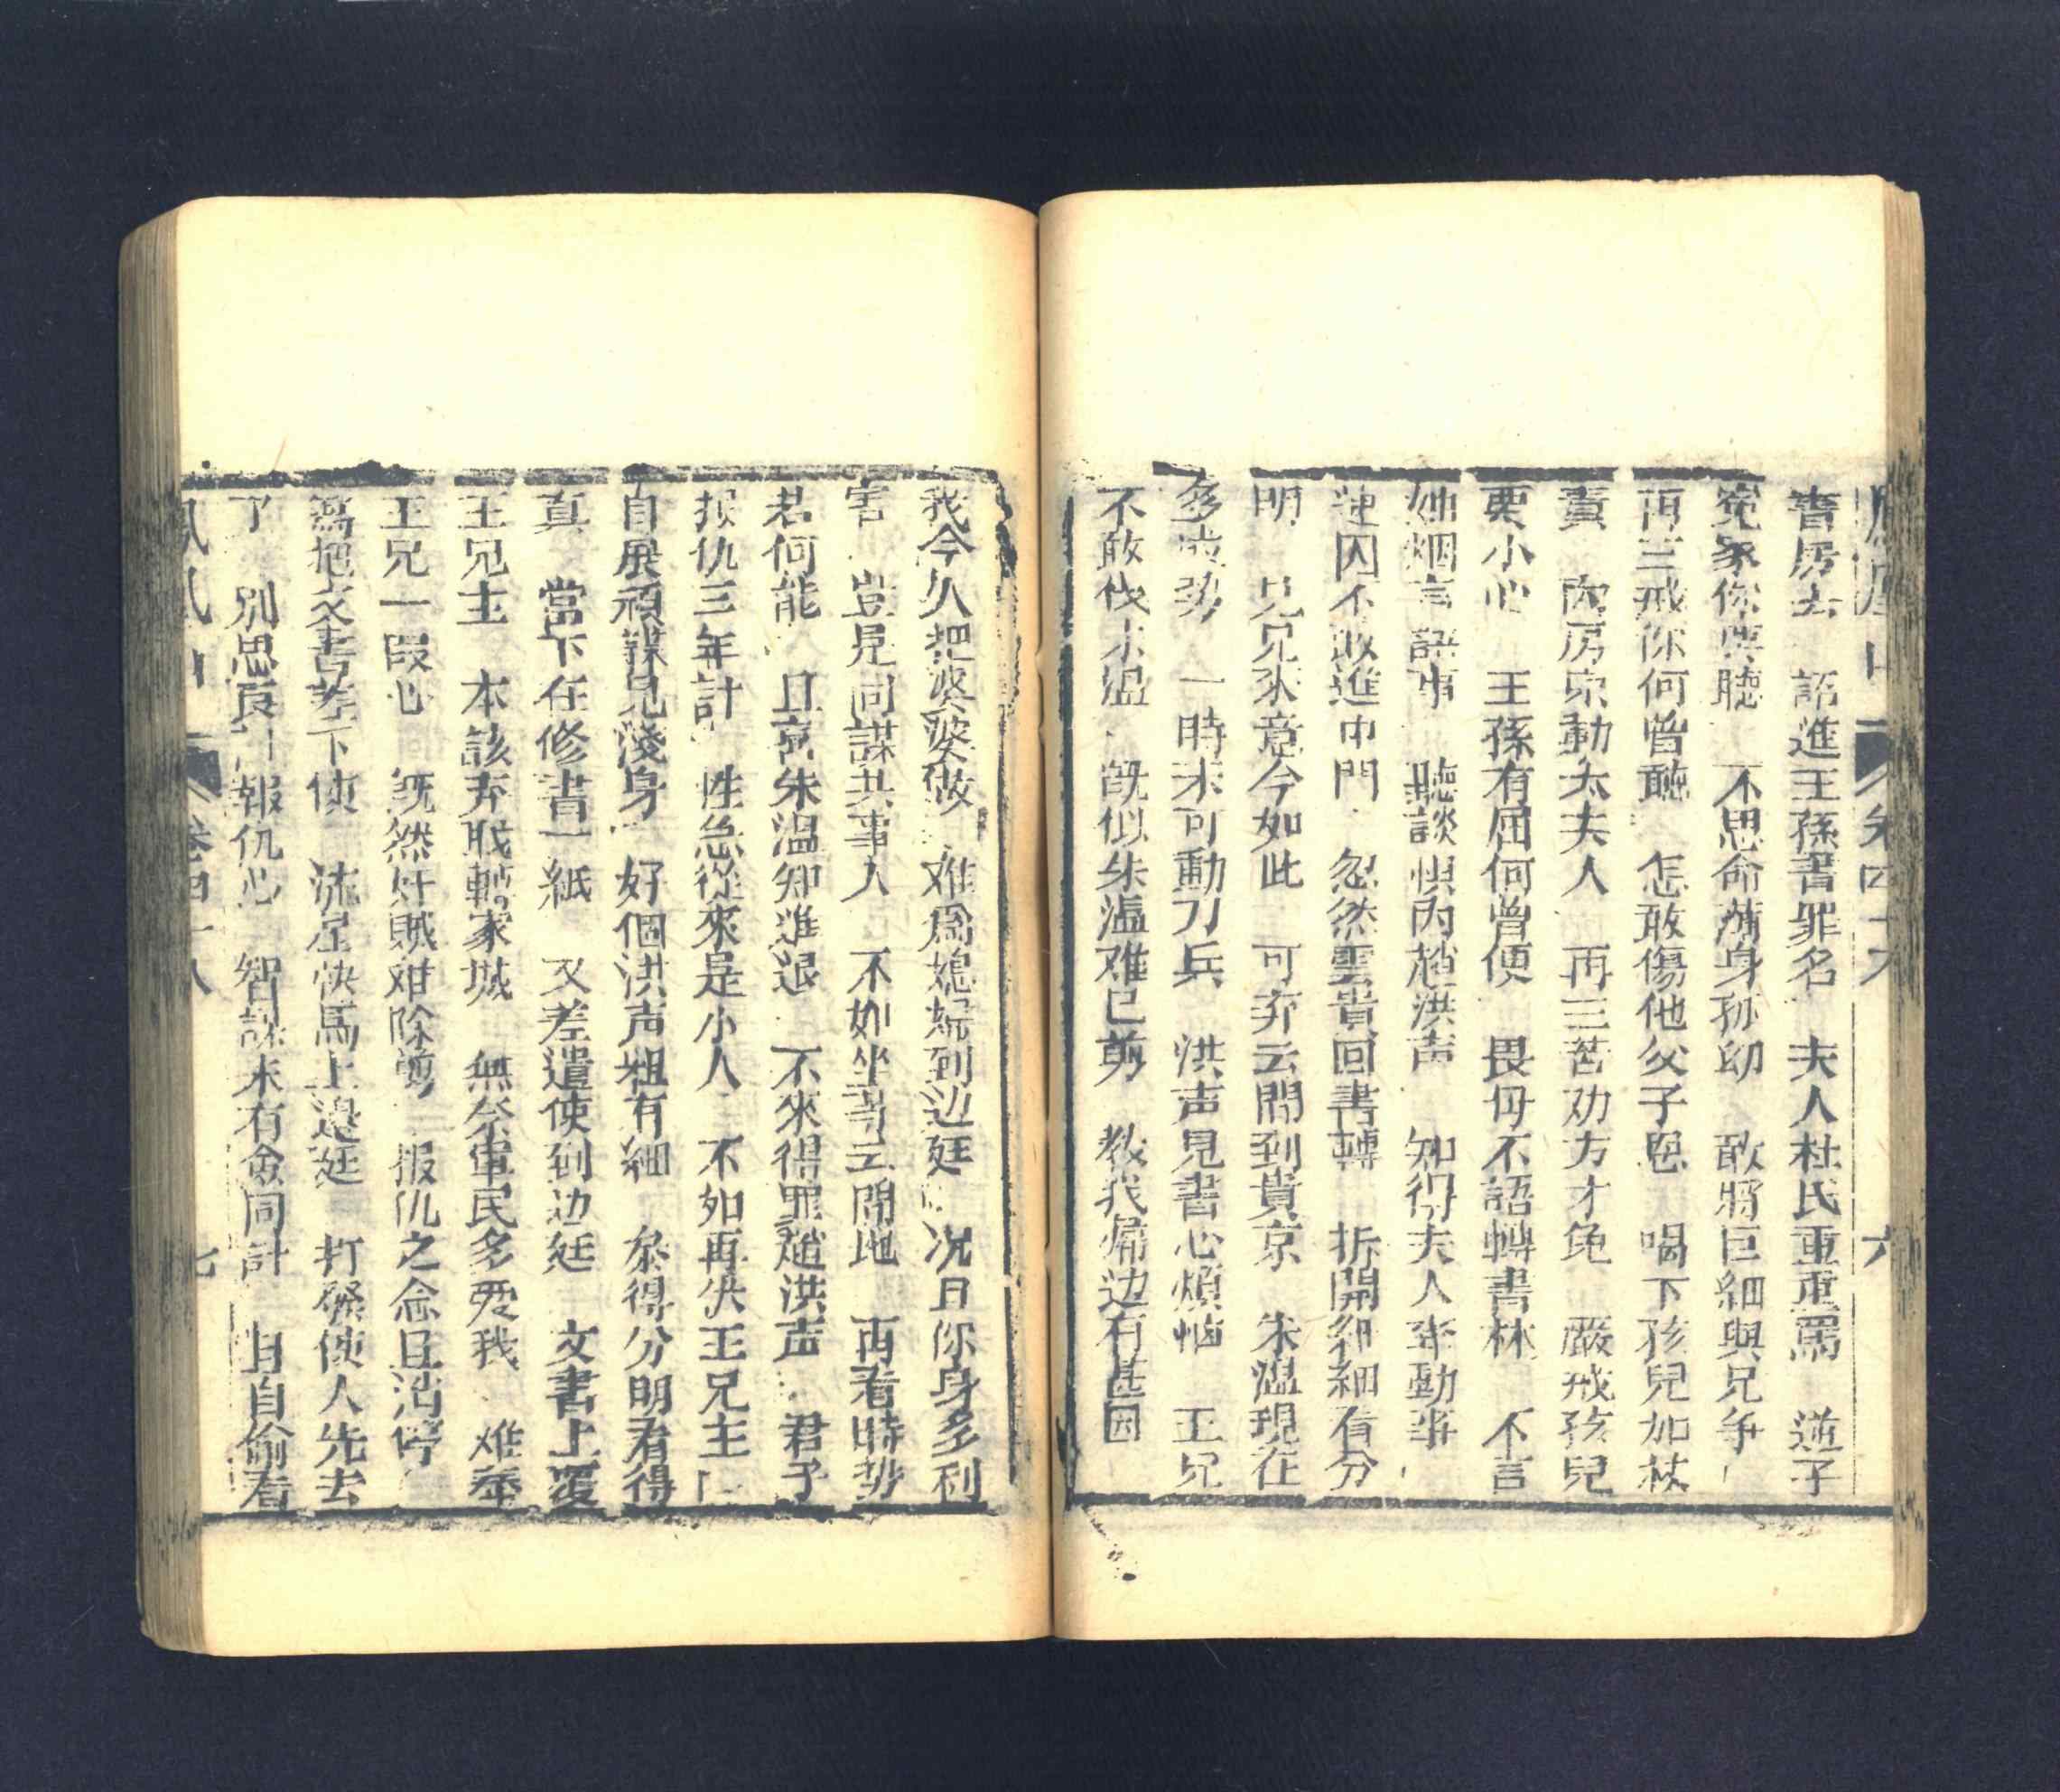 書房去　詔進王孫書罪名　夫人杜氏重重罵　逆子
冤家你與聽　不思命薄身孤幼　敢將巨細與兄爭
再三戒你何曾聽　怎敢傷他父子恩　喝下孩兒加杖
責　內房京動太夫人　再三苦劝方才免　嚴戒孩兒
要小心　王孫有屈何曾便　畏母不語轉書林　不言
她烟言語事　聽談惧內趙洪声　知得夫人牽動事
連囚不敢進中門　忽然雲貴回書轉　拆開細細有分
明　兄來意今如此　可弃云間到貴京　朱溫現在
多威势　一時未可動刀兵　洪声見書心煩恼　王兄
不敢伐朱温　既似朱溫难已剪　教我歸边有甚因
卷四十六　六
我今久把婆婆做　难為媳婦到边廷　况且你身多利
害　豈見同謀共事人　不如坐守云間地　再看時势
若何能　且京朱溫知進退　不來得罪趙洪声　君子
报仇三年計　性急從來是小人　不如再决王兄主
自展禎謀見淺身　好個洪声粗有細　叅得分明看得
真　當下在修書一紙　又差遣使到边廷　文書上覆
王兄主　本該弃戝轉家城　無奈軍民多爱我　难奉
王兄一段心　既然奸賊难除剪　报仇之念且消停
寫把文書差下使　流星快馬上邉廷　打發使人先去
了　別思良計報仇心　智謀未有僉同計　且自偷看
鳳凰山　卷四十八　七